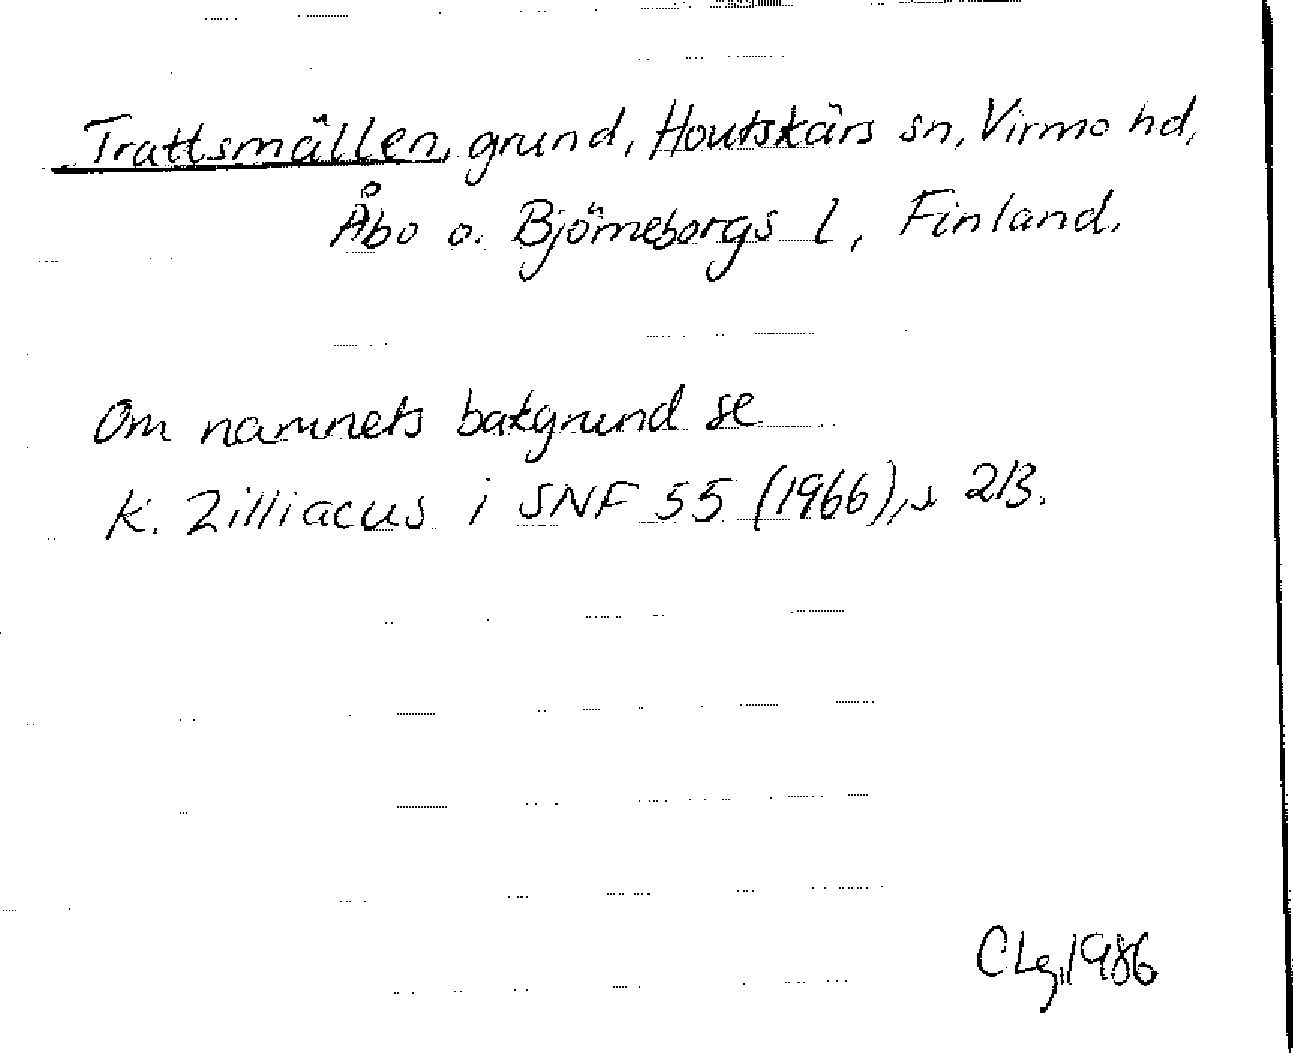 Trattsmällen, grund, Houtskärs sn, Virmo hd,
Åbo o. Björneborgs l, Finland.
Om namnets bakgrund se
K. Zilliacus i SNF 55 (1966), s 213.
CLg, 1986